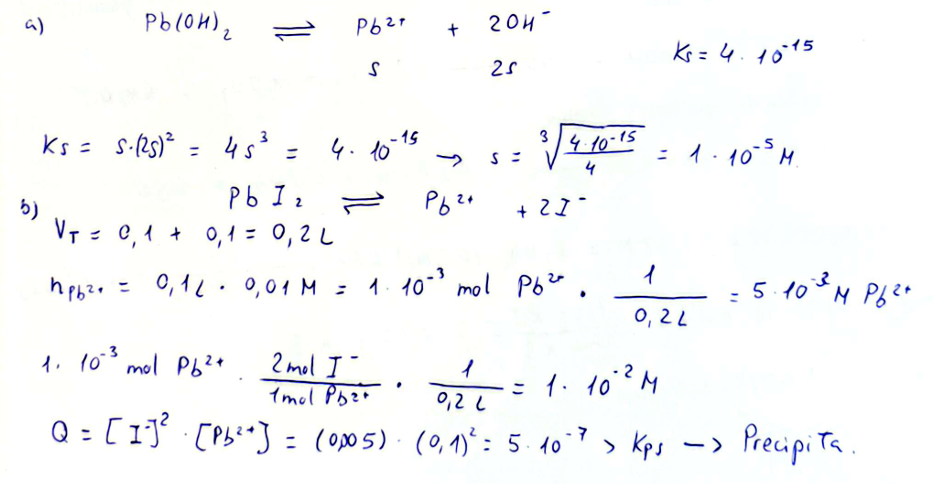 a) Pb(OH)₂ ⇌ Pb²⁺ + 2OH⁻
s 2s Ks = 4 · 10⁻¹⁵
Ks = s·(2s)² = 4s³ = 4 · 10⁻¹⁵ → s = ∛(4·10⁻¹⁵/4) = 1 · 10⁻⁵ M
b) Pb I₂ ⇌ Pb²⁺ + 2I⁻
V_T = 0,1 + 0,1 = 0,2 L
n_Pb²⁺ = 0,1 L · 0,01 M = 1 · 10⁻³ mol Pb²⁺ · 1/0,2 L = 5·10⁻³ M Pb²⁺
1 · 10⁻³ mol Pb²⁺ · 2 mol I⁻/1 mol Pb²⁺ · 1/0,2 L = 1 · 10⁻² M
Q = [I⁻]² · [Pb²⁺] = (0,005) · (0,1)² = 5 · 10⁻⁷ > Kps → Precipita.